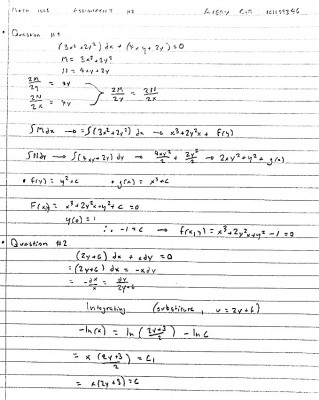 Assignment #2
• Question #1
(3x²+2y²) dx + (4xy+2y) = 0
M = 3x²+2y²
N = 4xy+2y
∂M/∂y = 4y
∂N/∂x = 4y
∂M/∂y = ∂N/∂x
∫Mdx → ∫(3x²+2y²) dx → x³+2y²x + f(y)
∫Ndy → ∫(4xy+2y) dy → 4xy²/2 + 2y²/2 → 2xy²+y²+g(x)
• f(y) = y²+c • g(x) = x³+c
F(x,y) = x³+2y²x+y²+c = 0
y(0) = 1
∴ -1=c → f(x,y) = x³+2y²x+y²-1=0
• Question #2
(2y+6) dx + xdy = 0
= (2y+6) dx = -xdy
= -dx/x = dy/2y+6
Integrating (substitute, u=2y+6)
-ln(x) = ln(2y+3/2) - ln c
= x(2y+3/2) = C₁
= x(2y+3) = C